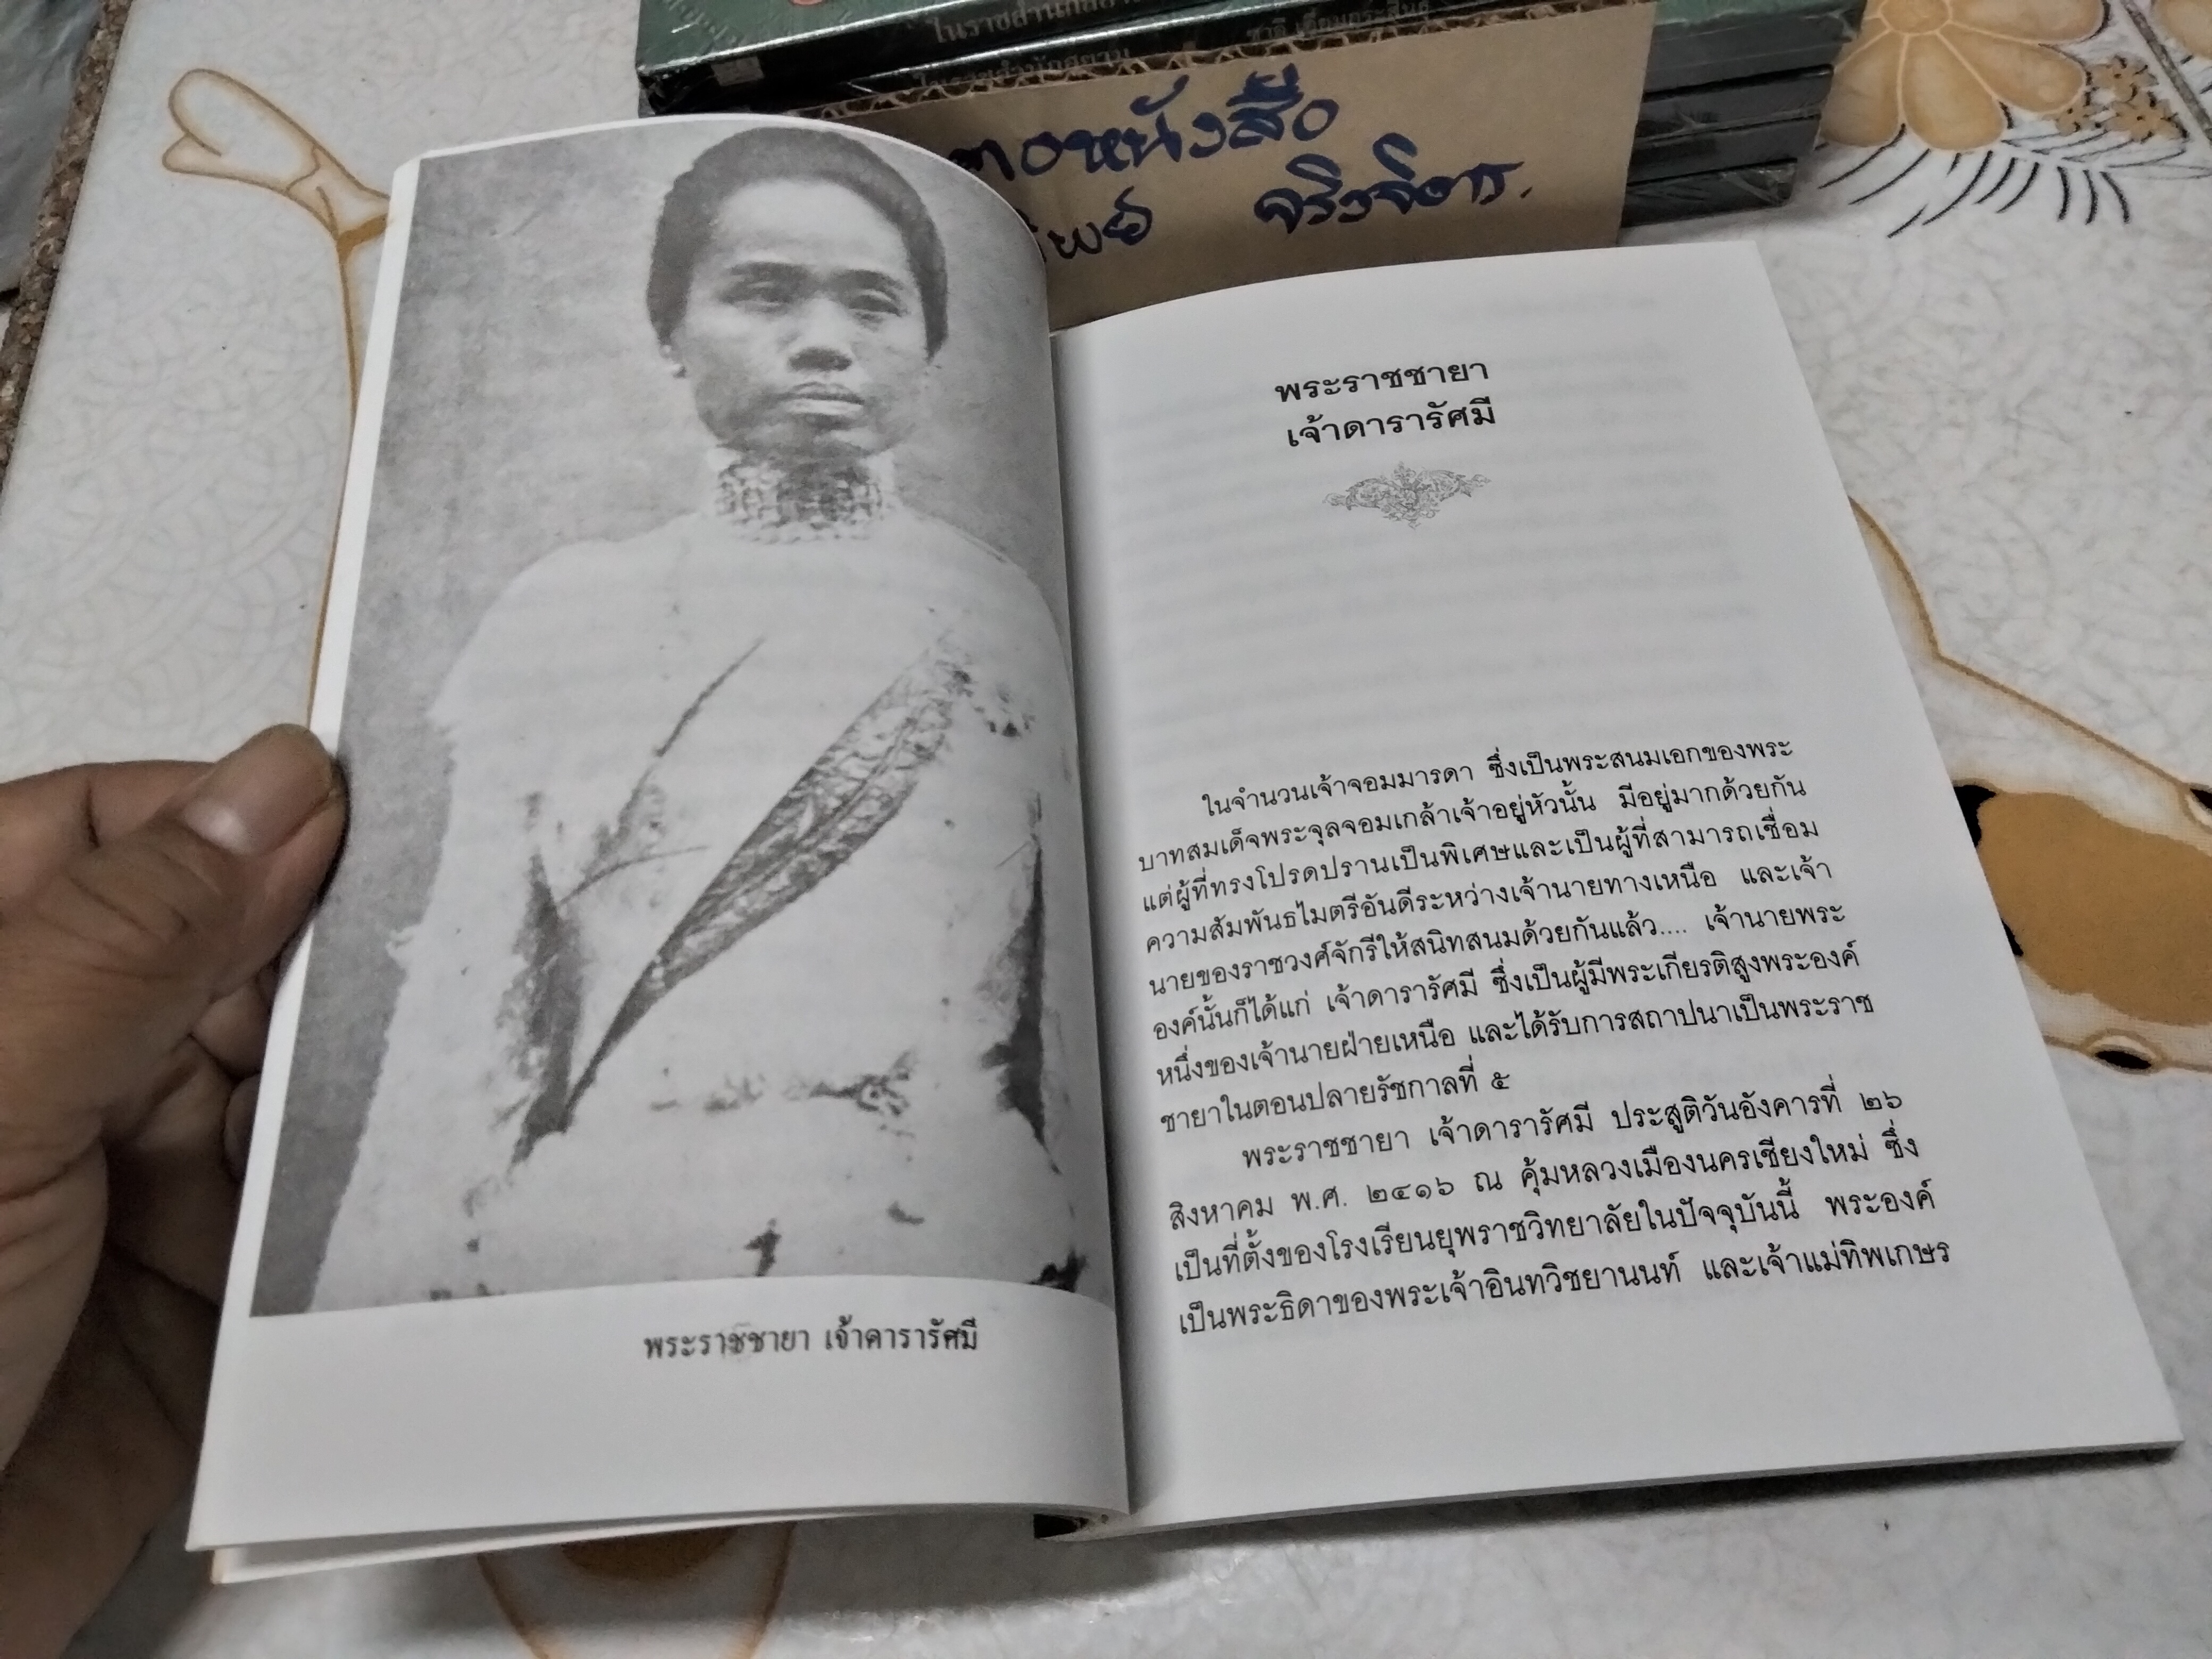 ในราชสำนัก
ชาติ เอี่ยมกระสินธุ์
ในราชสำนักสยาม
หนังสือ
จริงจิตร.
พระราชชายา เจ้าดารารัศมี
พระราชชายา
เจ้าดารารัศมี
ในจำนวนเจ้าจอมมารดา ซึ่งเป็นพระสนมเอกของพระ
บาทสมเด็จพระจุลจอมเกล้าเจ้าอยู่หัวนั้น มีอยู่มากด้วยกัน
แต่ผู้ที่ทรงโปรดปรานเป็นพิเศษและเป็นผู้ที่สามารถเชื่อม
ความสัมพันธไมตรีอันดีระหว่างเจ้านายทางเหนือ และเจ้า
นายของราชวงศ์จักรีให้สนิทสนมด้วยกันแล้ว.... เจ้านายพระ
องค์นั้นก็ได้แก่ เจ้าดารารัศมี ซึ่งเป็นผู้มีพระเกียรติสูงพระองค์
หนึ่งของเจ้านายฝ่ายเหนือ และได้รับการสถาปนาเป็นพระราช
ชายาในตอนปลายรัชกาลที่ ๕
พระราชชายา เจ้าดารารัศมี ประสูติวันอังคารที่ ๒๖
สิงหาคม พ.ศ. ๒๔๑๖ ณ คุ้มหลวงเมืองนครเชียงใหม่ ซึ่ง
เป็นที่ตั้งของโรงเรียนยุพราชวิทยาลัยในปัจจุบันนี้ พระองค์
เป็นพระธิดาของพระเจ้าอินทวิชยานนท์ และเจ้าแม่ทิพเกษร